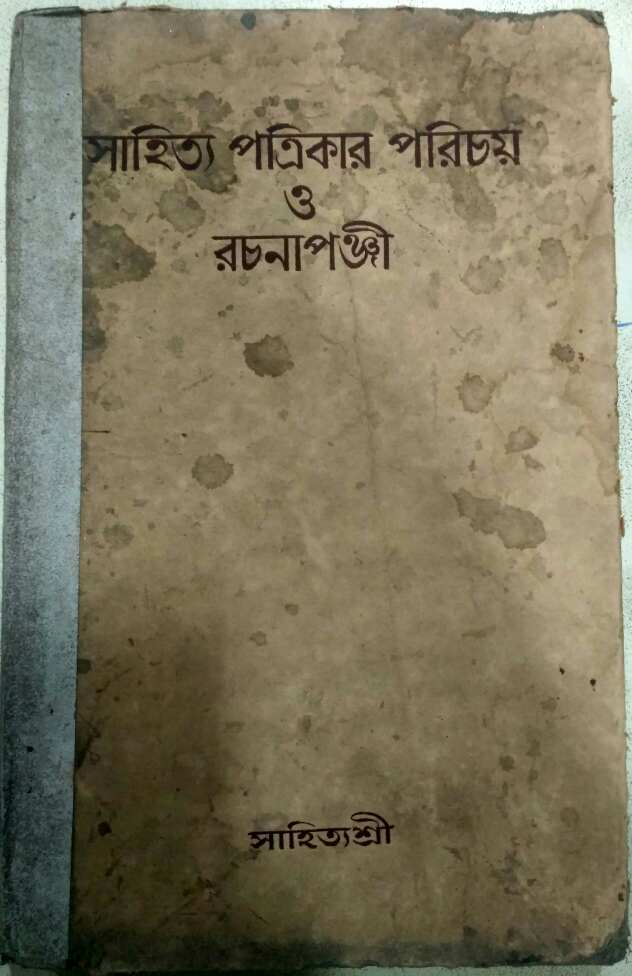 সাহিত্য পত্রিকার পরিচয়
ও
রচনাপঞ্জী
সাহিত্যশ্রী